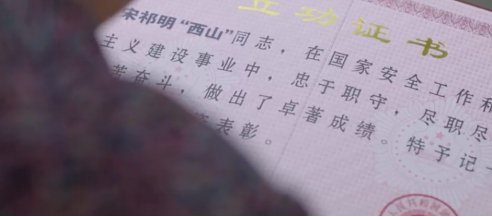 立功证书
宋祁明“西山”同志，在国家安全工作和
主义建设事业中，忠于职守，尽职尽
苦奋斗，做出了卓著成绩。特予记一
表彰。
人民共和国